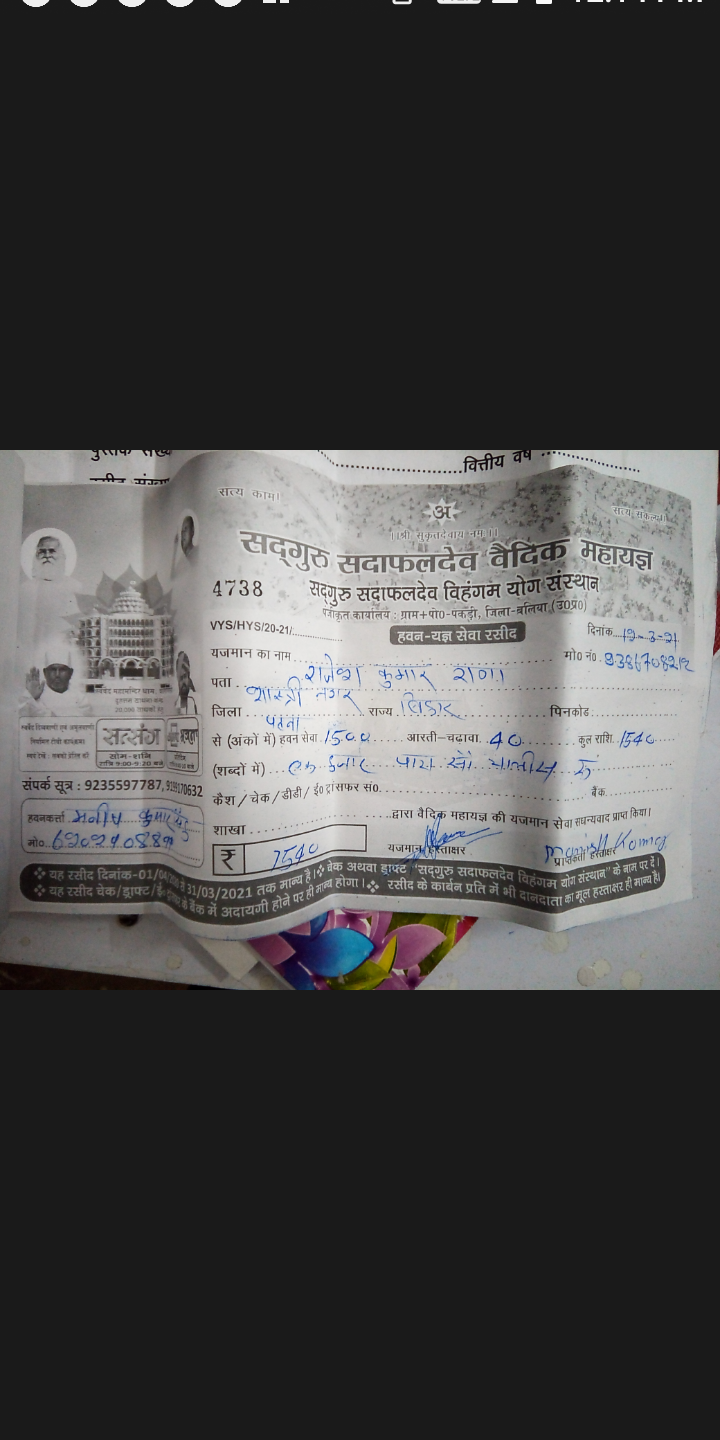 वित्तीय वर्ष
सत्य काम।
अ
सत्य संकल्प।
।।श्री सुकृतदेवाय नमः।।
सद्गुरु सदाफलदेव वैदिक महायज्ञ
4738 सद्गुरु सदाफलदेव विहंगम योग संस्थान
पंजीकृत कार्यालय : ग्राम+पो0-पकड़ी, जिला-बलिया (उ0प्र0)
VYS/HYS/20-21/ हवन-यज्ञ सेवा रसीद दिनांक
यजमान का नाम राजेश कुमार राणा मो0 नं0
पता शास्त्री नगर
जिला पटना राज्य बिहार पिनकोड
से (अंकों में) हवन सेवा 1500 आरती-चढ़ावा 40 कुल राशि 1540
(शब्दों में) एक हजार पांच सौ चालीस रू
कैश / चेक / डीडी / ई0 ट्रांसफर सं0 बैंक
शाखा द्वारा वैदिक महायज्ञ की यजमान सेवा सधन्यवाद प्राप्त किया।
₹ 1540 यजमान हस्ताक्षर प्राप्तकर्ता हस्ताक्षर
Manish Kumar
सत्संग
सोम-शनि
रात्रि 9:00-9:20 बजे
संपर्क सूत्र : 9235597787,
हवनकर्त्ता मनीष कुमार
मो0
❖ यह रसीद दिनांक-01/04/ 31/03/2021 तक मान्य है। ❖ चेक अथवा ड्राफ्ट "सद्गुरु सदाफलदेव विहंगम योग संस्थान" के नाम पर दें।
❖ यह रसीद चेक/ड्राफ्ट/ के बैंक में अदायगी होने पर ही मान्य होगा। ❖ रसीद के कार्बन प्रति में भी दानदाता का मूल हस्ताक्षर ही मान्य है।